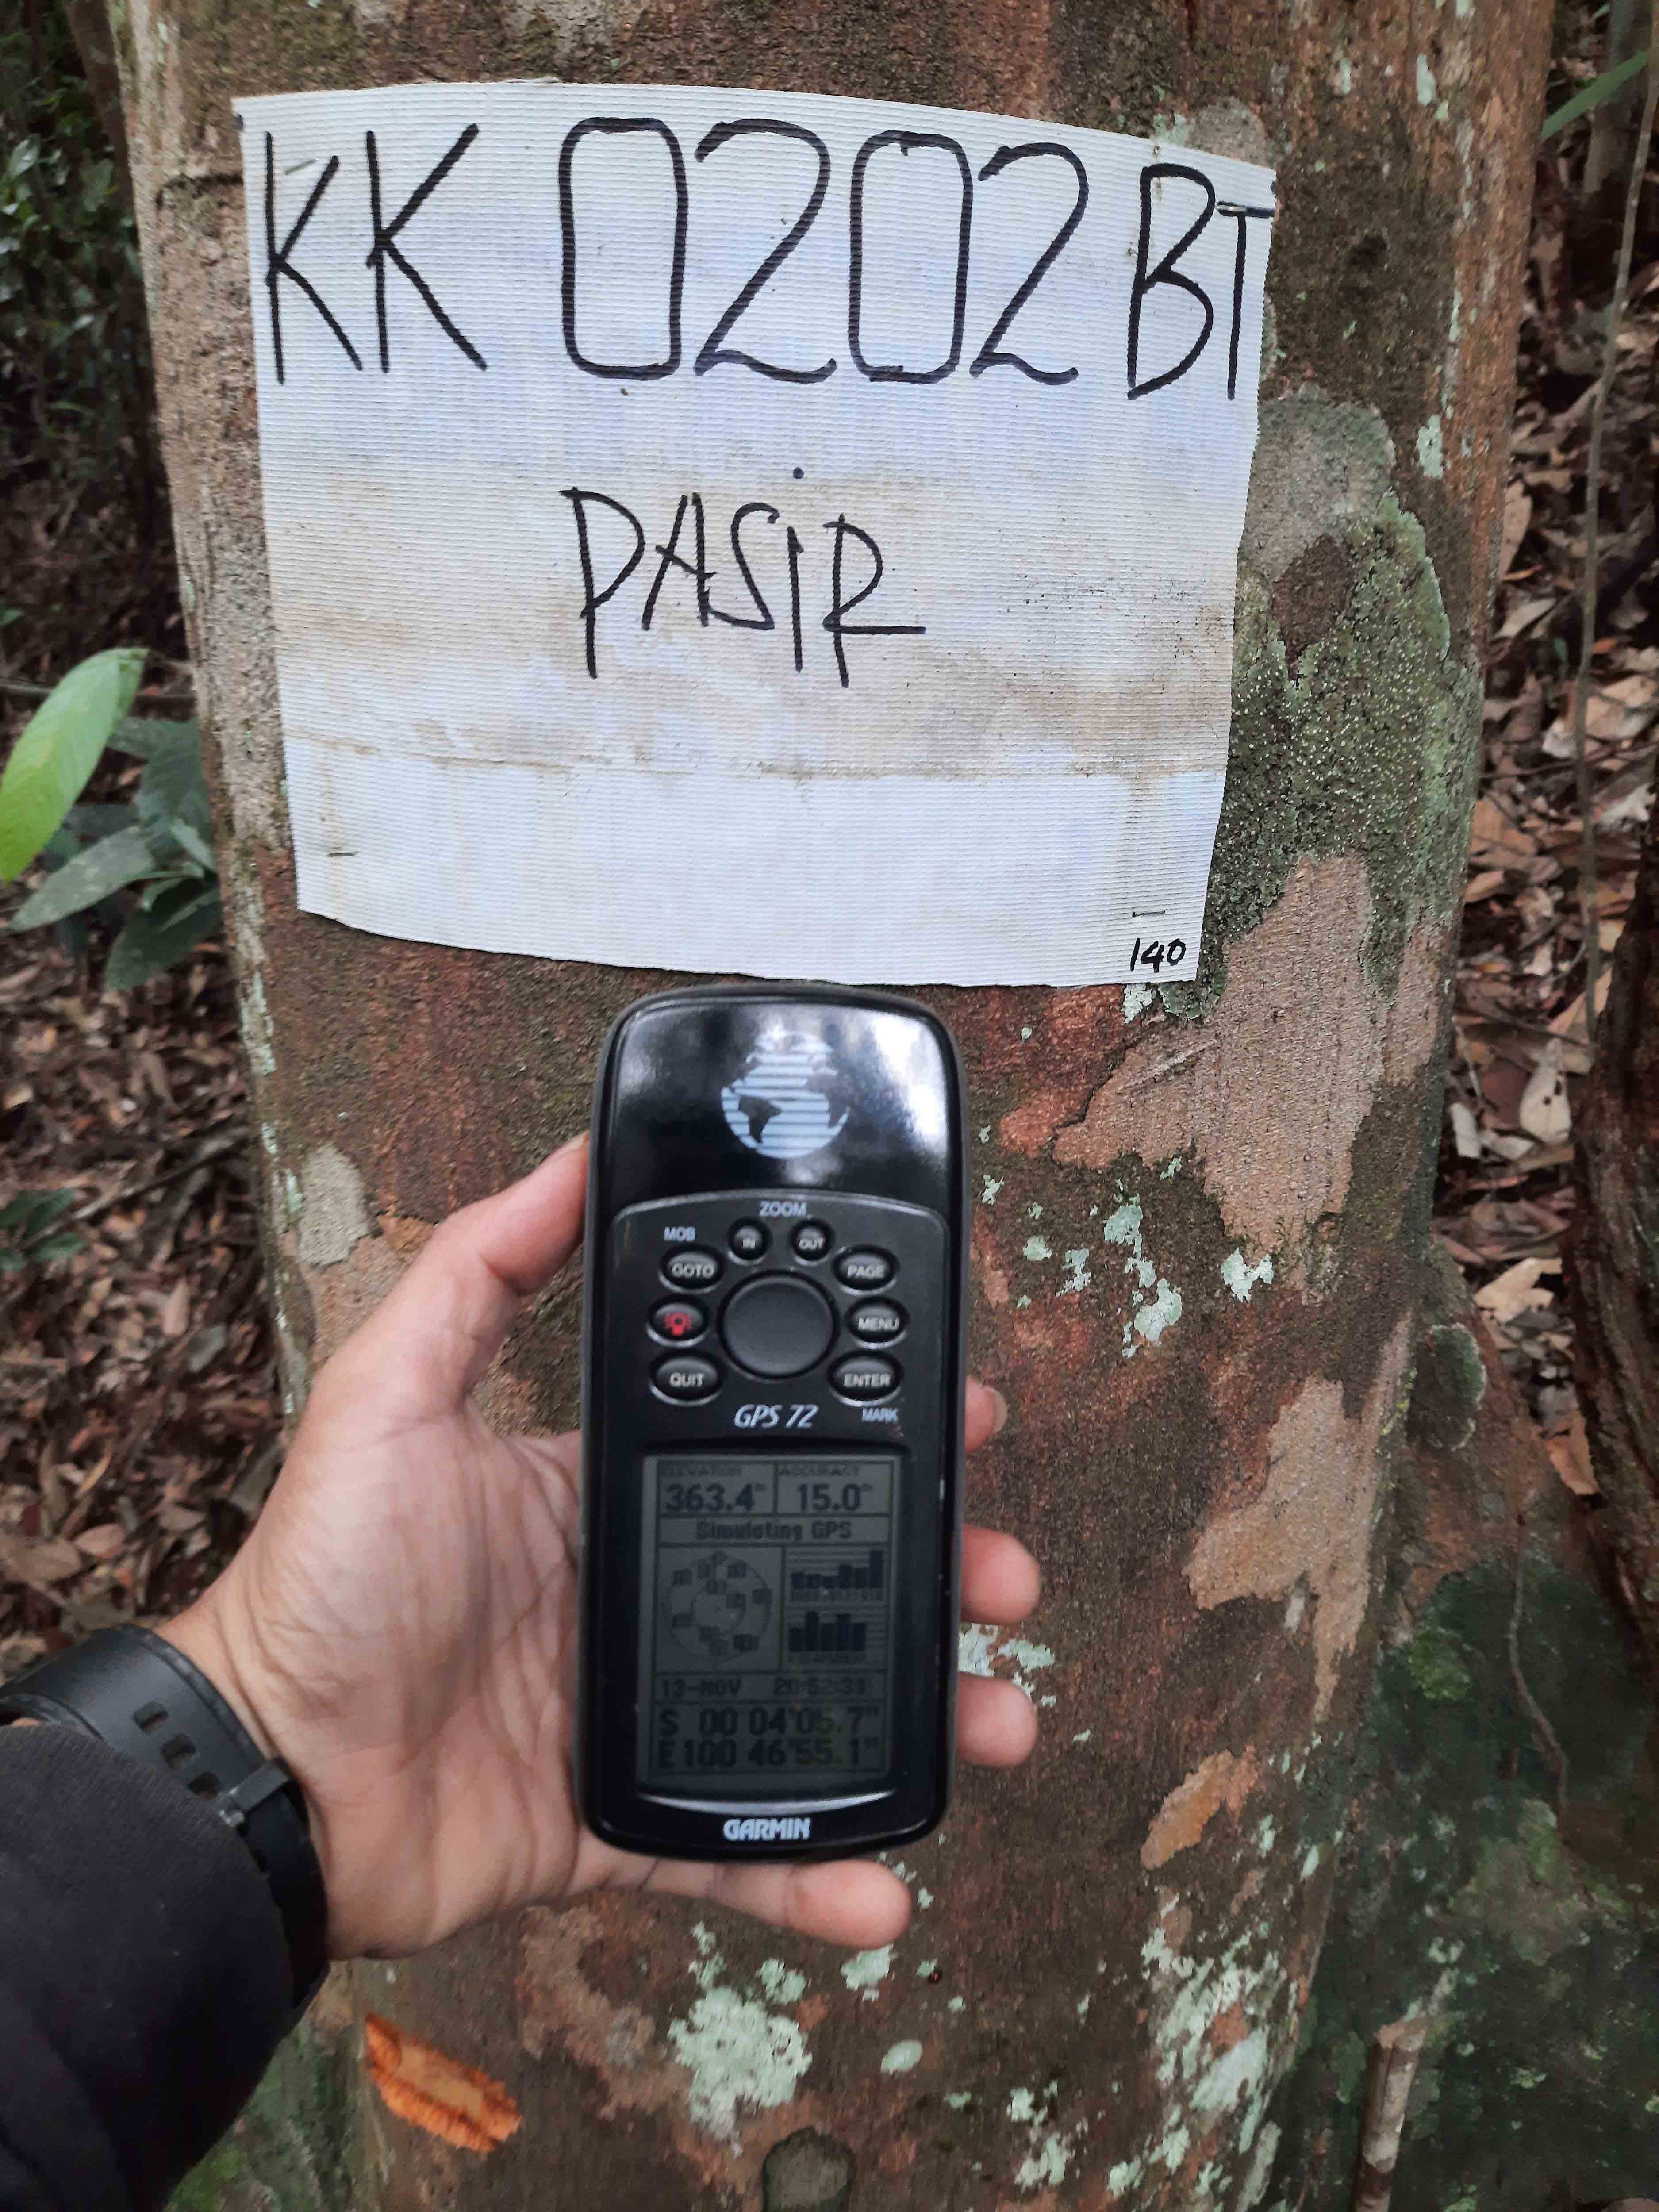 KK 0202 BT
PASiR
140
ZOOM
MOB
IN
OUT
GOTO
PAGE
MENU
QUIT
ENTER
GPS 72
MARK
ELEVATION ACCURACY
363.4m 15.0m
Simulating GPS
13-NOV 20:52:31
S 00 04'05.7"
E100 46'55.1"
GARMIN